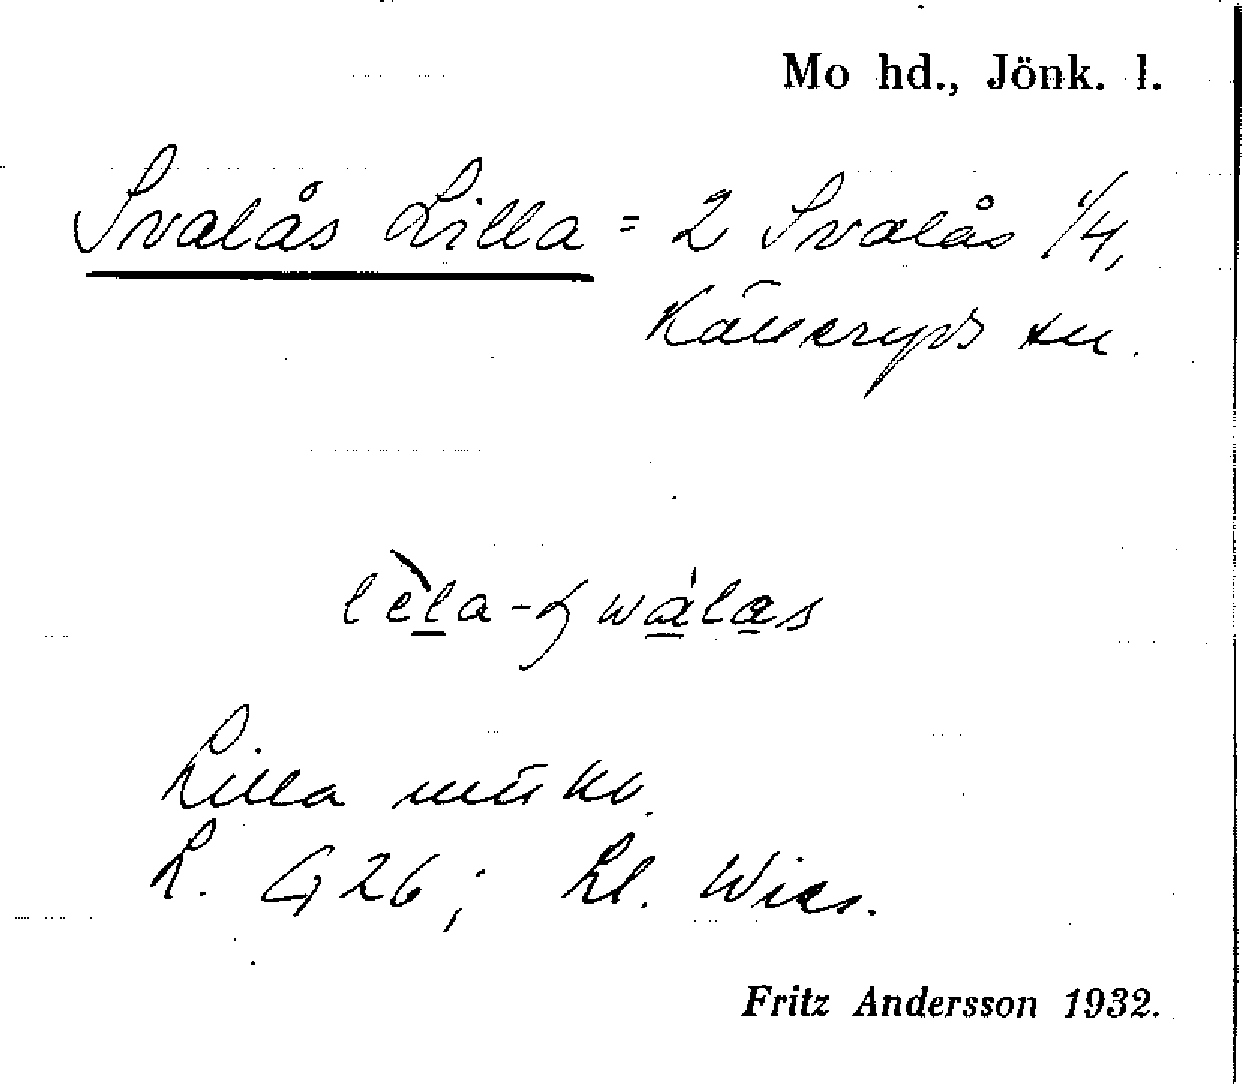 Mo hd., Jönk. l.
Svalås Lilla = 2 Svalås 1/4,
Källeryds sn.
lèla-Swålas
Lilla
L. G 26; Ll.
Fritz Andersson 1932.